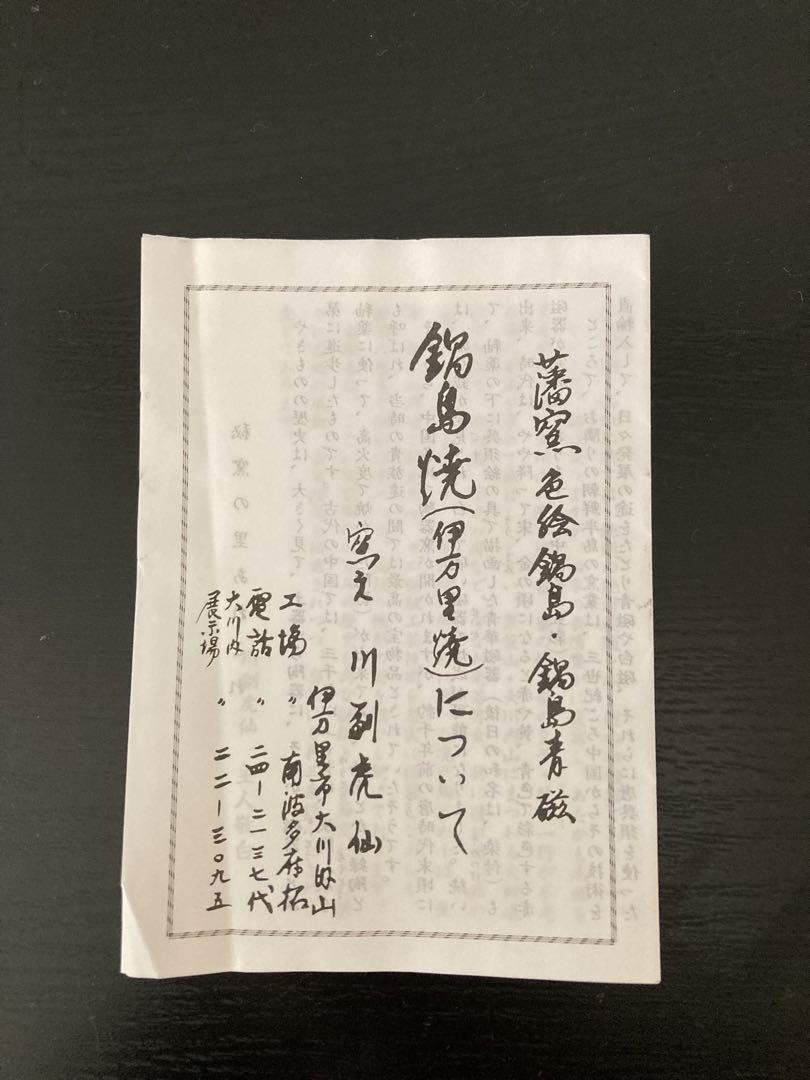 藩窯色絵鍋島・鍋島青磁
鍋島焼(伊万里焼)について
窯元 川副虎仙
伊万里市大川内山
工場 〃 南波多府招
電話 〃 二四ー二一三七代
大川内
展示場 〃 二二ー三〇九五